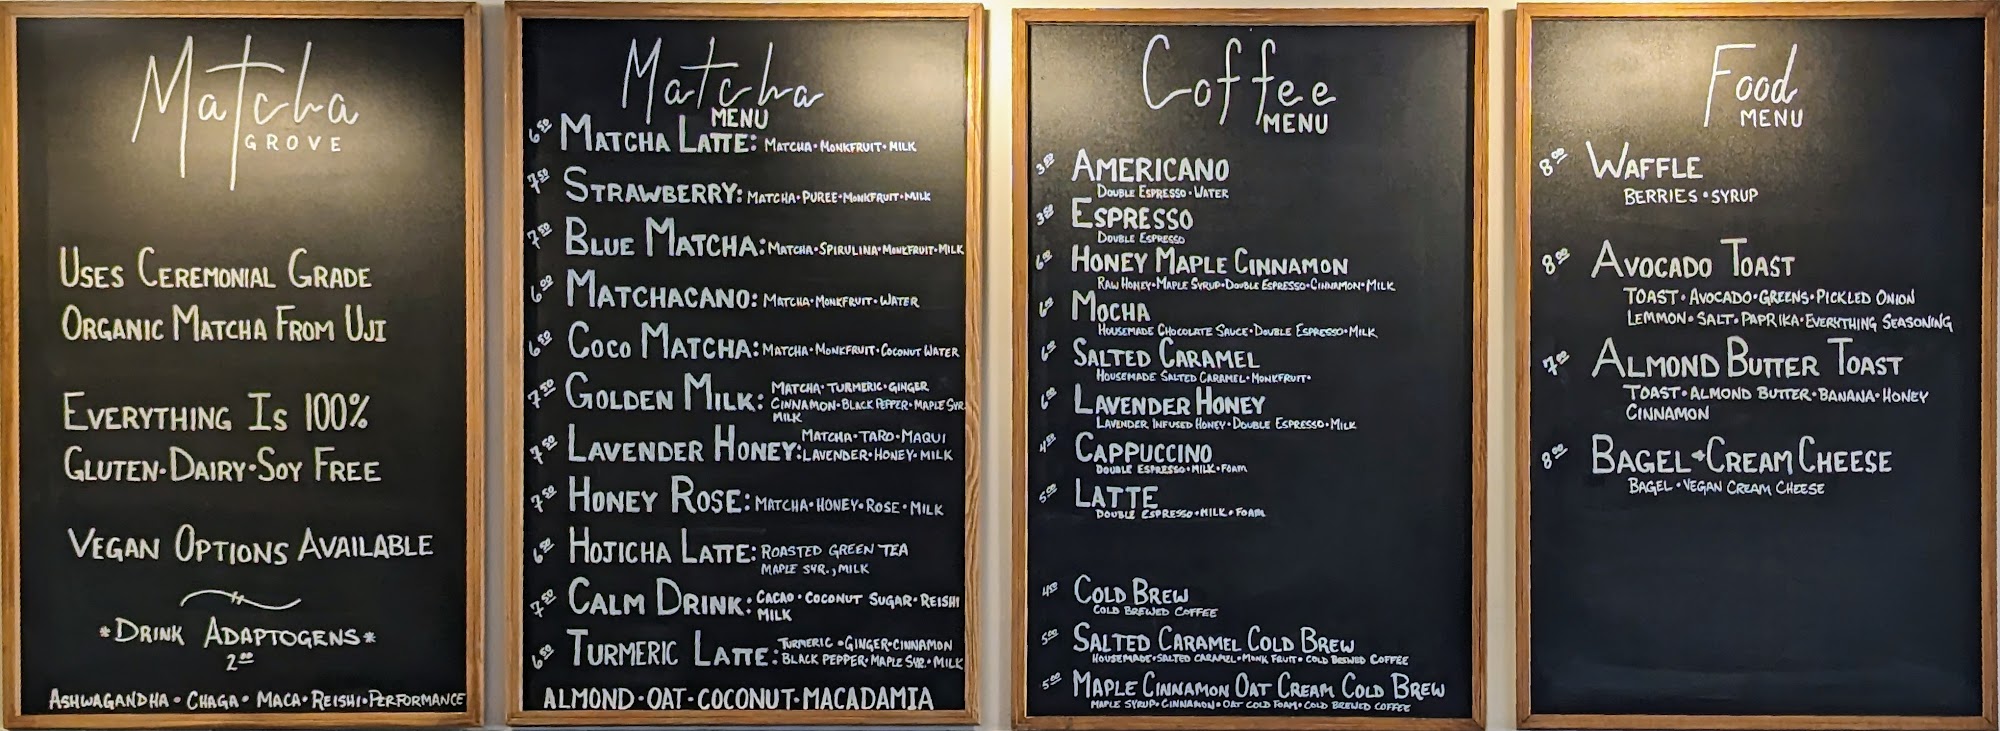 Matcha
GROVE
USES CEREMONIAL GRADE
ORGANIC MATCHA FROM UJI
EVERYTHING IS 100%
GLUTEN·DAIRY·SOY FREE
VEGAN OPTIONS AVAILABLE
*DRINK ADAPTOGENS*
2.00
ASHWAGANDHA · CHAGA · MACA · REISHI · PERFORMANCE
Matcha
MENU
6.50 MATCHA LATTE: MATCHA · MONKFRUIT · MILK
7.50 STRAWBERRY: MATCHA · PUREE · MONKFRUIT · MILK
7.50 BLUE MATCHA: MATCHA · SPIRULINA · MONKFRUIT · MILK
6.00 MATCHACANO: MATCHA · MONKFRUIT · WATER
6.50 COCO MATCHA: MATCHA · MONKFRUIT · COCONUT WATER
7.50 GOLDEN MILK: MATCHA · TURMERIC · GINGER
CINNAMON · BLACK PEPPER · MAPLE SYR.
MILK
7.50 LAVENDER HONEY: MATCHA · TARO · MAQUI
LAVENDER · HONEY · MILK
7.50 HONEY ROSE: MATCHA · HONEY · ROSE · MILK
6.50 HOJICHA LATTE: ROASTED GREEN TEA
MAPLE SYR., MILK
7.50 CALM DRINK: CACAO · COCONUT SUGAR · REISHI
MILK
6.50 TURMERIC LATTE: TURMERIC · GINGER · CINNAMON
BLACK PEPPER · MAPLE SYR. · MILK
ALMOND · OAT · COCONUT · MACADAMIA
Coffee
MENU
3.50 AMERICANO
DOUBLE ESPRESSO · WATER
3.50 ESPRESSO
DOUBLE ESPRESSO
6.00 HONEY MAPLE CINNAMON
RAW HONEY · MAPLE SYRUP · DOUBLE ESPRESSO · CINNAMON · MILK
6.00 MOCHA
HOUSEMADE CHOCOLATE SAUCE · DOUBLE ESPRESSO · MILK
6.00 SALTED CARAMEL
HOUSEMADE SALTED CARAMEL · MONKFRUIT ·
6.00 LAVENDER HONEY
LAVENDER INFUSED HONEY · DOUBLE ESPRESSO · MILK
4.50 CAPPUCCINO
DOUBLE ESPRESSO · MILK · FOAM
5.00 LATTE
DOUBLE ESPRESSO · MILK · FOAM
4.50 COLD BREW
COLD BREWED COFFEE
5.00 SALTED CARAMEL COLD BREW
HOUSEMADE · SALTED CARAMEL · MONK FRUIT · COLD BREWED COFFEE
5.00 MAPLE CINNAMON OAT CREAM COLD BREW
MAPLE SYRUP · CINNAMON · OAT COLD FOAM · COLD BREWED COFFEE
Food
MENU
8.00 WAFFLE
BERRIES · SYRUP
8.00 AVOCADO TOAST
TOAST · AVOCADO · GREENS · PICKLED ONION
LEMMON · SALT · PAPRIKA · EVERYTHING SEASONING
7.00 ALMOND BUTTER TOAST
TOAST · ALMOND BUTTER · BANANA · HONEY
CINNAMON
8.00 BAGEL + CREAM CHEESE
BAGEL · VEGAN CREAM CHEESE